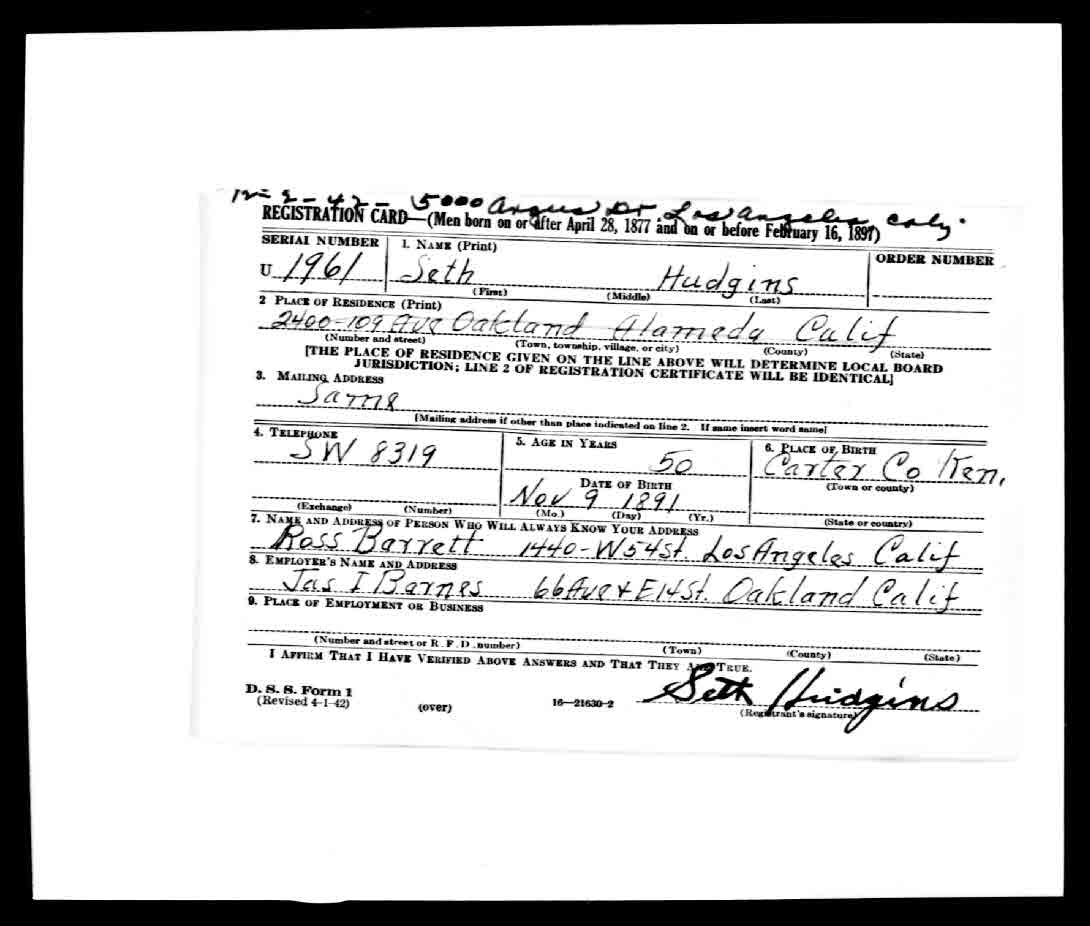 12-2-42- 5000 Argus Dr Los Angeles, Calif.
REGISTRATION CARD—(Men born on or after April 28, 1877 and on or before February 16, 1897)
SERIAL NUMBER 1. NAME (Print) ORDER NUMBER
U 1961 Seth Hudgins
(First) (Middle) (Last)
2 PLACE OF RESIDENCE (Print)
2400-109 Ave Oakland Alameda Calif
(Number and street) (Town, township, village, or city) (County) (State)
[THE PLACE OF RESIDENCE GIVEN ON THE LINE ABOVE WILL DETERMINE LOCAL BOARD
JURISDICTION; LINE 2 OF REGISTRATION CERTIFICATE WILL BE IDENTICAL]
3. MAILING ADDRESS
Same
[Mailing address if other than place indicated on line 2. If same insert word same]
4. TELEPHONE 5. AGE IN YEARS 6. PLACE OF BIRTH
SW 8319 50 Carter Co Ken.
DATE OF BIRTH (Town or county)
Nov 9 1891
(Exchange) (Number) (Mo.) (Day) (Yr.) (State or country)
7. NAME AND ADDRESS OF PERSON WHO WILL ALWAYS KNOW YOUR ADDRESS
Ross Barrett 1440-W54St. Los Angeles Calif
8. EMPLOYER'S NAME AND ADDRESS
Jas I Barnes 66Ave + E14St. Oakland Calif
9. PLACE OF EMPLOYMENT OR BUSINESS
(Number and street or R. F. D. number) (Town) (County) (State)
I AFFIRM THAT I HAVE VERIFIED ABOVE ANSWERS AND THAT THEY ARE TRUE.
D. S. S. Form 1 Seth Hudgins
(Revised 4-1-42) (over) 16—21630-2 (Registrant's signature)